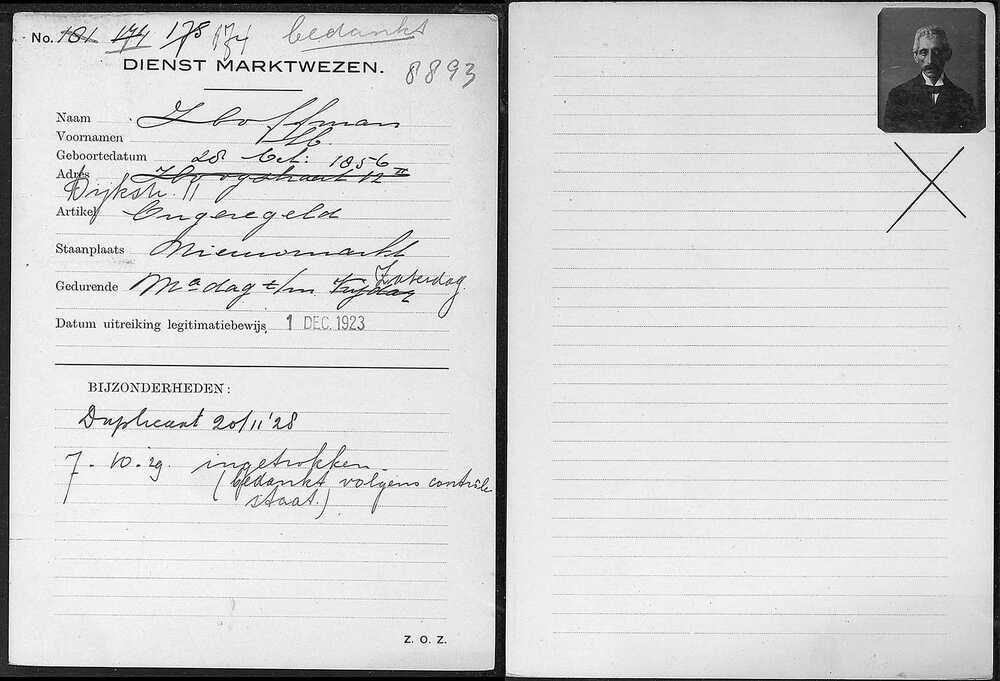 No. 181 174 178 174 bedankt
DIENST MARKTWEZEN. 8893
Naam Hoffman
Voornamen Ab.
Geboortedatum 28 Oct. 1856
Adres Hoogstraat 12 II
Dijkstr. 11
Artikel Ongeregeld
Staanplaats Nieuwmarkt
Gedurende Maandag t/m Vrijdag Zaterdag
Datum uitreiking legitimatiebewijs, 1 DEC. 1923
BIJZONDERHEDEN:
Duplicaat 20/11'28
7-10-29. ingetrokken.
(bedankt volgens contrôle
staat.)
Z. O. Z.